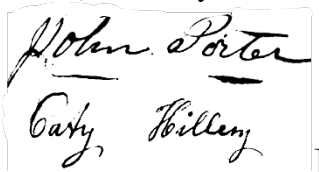 John Porter
Caty Hillery